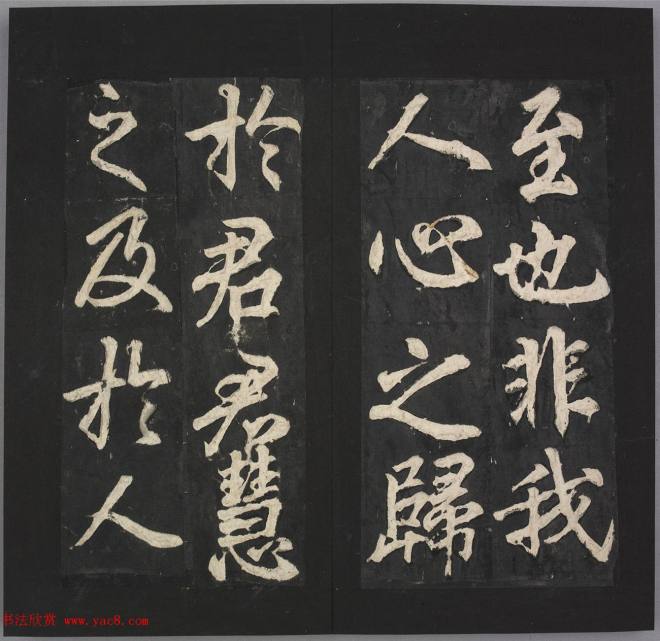 至也非我
人心之歸
於君君慧
之及於人
书法欣赏 www.yac8.com